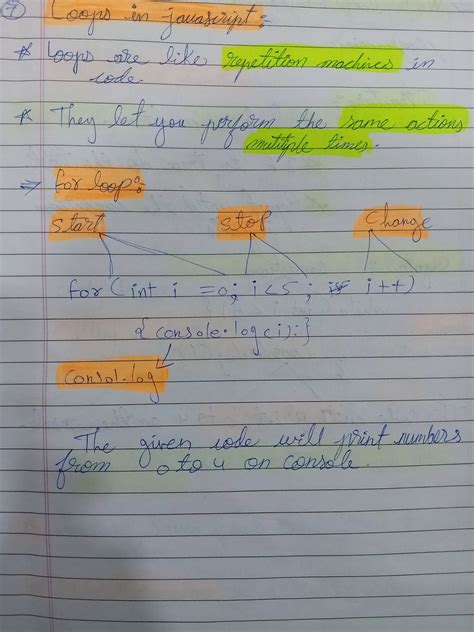 7 Loops in javascript:-
* Loops are like repetition machines in
code.
* They let you perform the same actions
multiple times.
⇒ for loop:-
start stop change
for (int i = 0; i < 5; i++)
{console.log(i);}
consol.log
The given code will print numbers
from 0 to 4 on console.